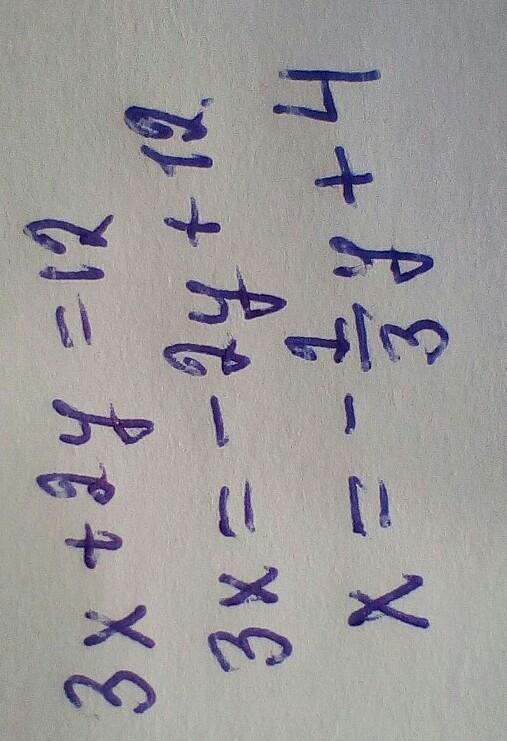 3x + 2y = 12
3x = - 2y + 12
x = - 2/3 y + 4